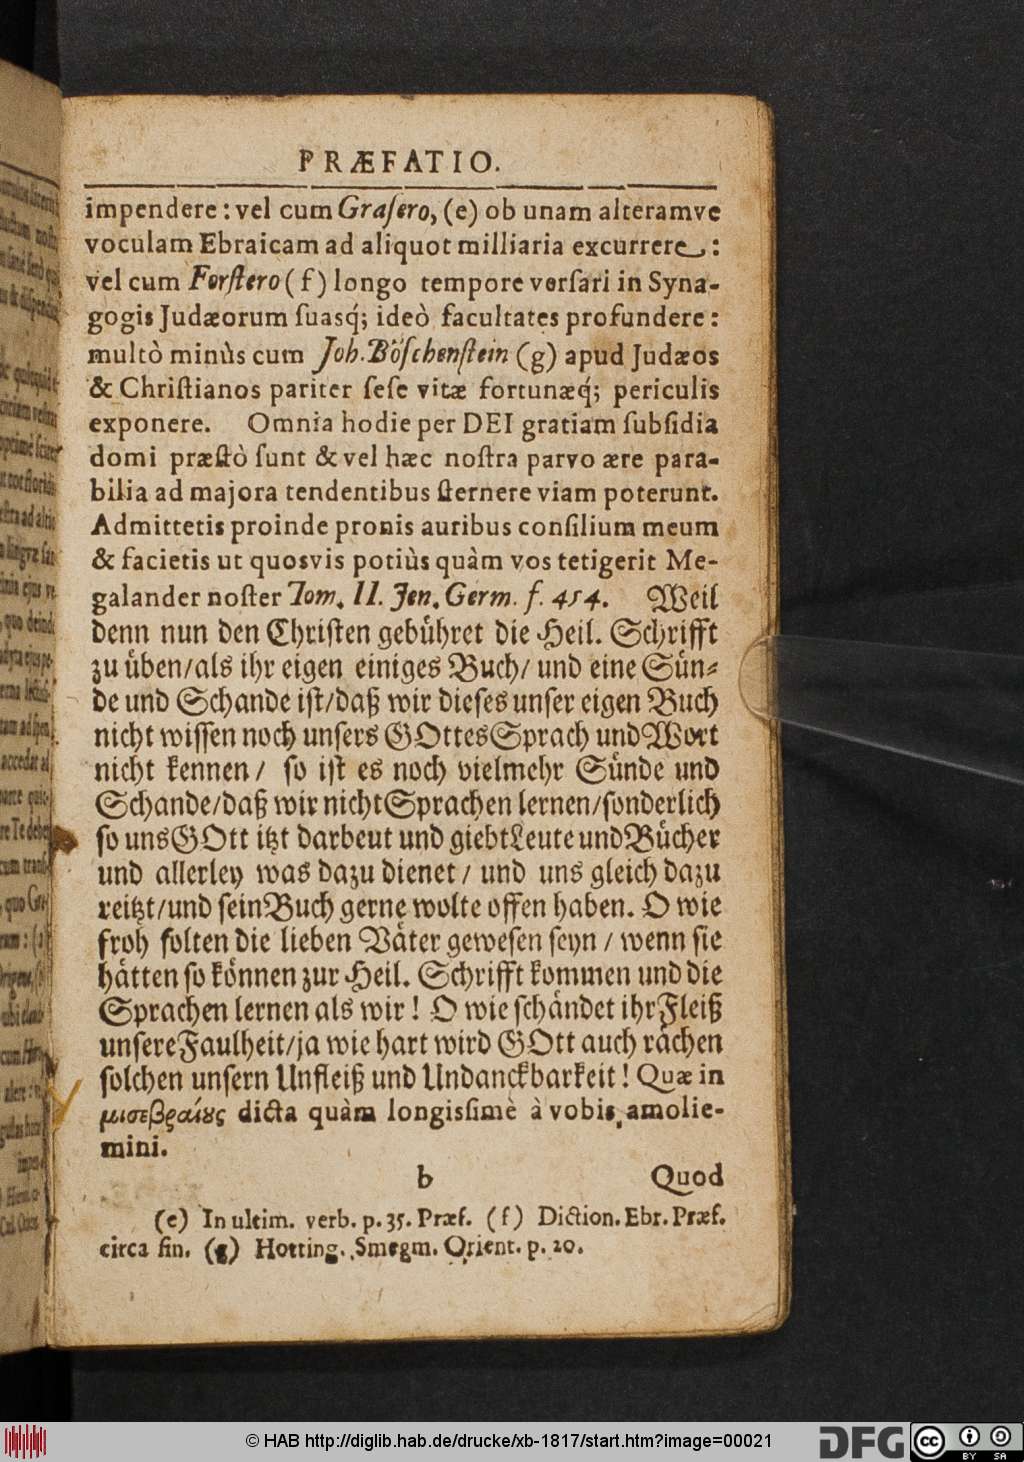 PRÆFATIO.
impendere: vel cum Graſero, (e) ob unam alteramve
voculam Ebraicam ad aliquot milliaria excurrere:
vel cum Forſtero (f) longo tempore verſari in Syna-
gogis Judæorum ſuasq́; ideò facultates profundere:
multò minùs cum Joh. Böſchenſtein (g) apud Judæos
& Chriſtianos pariter ſeſe vitæ fortunæq́; periculis
exponere. Omnia hodie per DEI gratiam ſubſidia
domi præſtò ſunt & vel hæc noſtra parvo ære para-
bilia ad majora tendentibus ſternere viam poterunt.
Admittetis proinde pronis auribus conſilium meum
& facietis ut quosvis potiùs quàm vos tetigerit Me-
galander noſter Tom. II. Jen. Germ. f. 454. Weil
denn nun den Chriſten gebühret die Heil. Schrifft
zu üben/als ihr eigen einiges Buch/ und eine Sün-
de und Schande iſt/daß wir dieſes unſer eigen Buch
nicht wiſſen noch unſers GOttes Sprach und Wort
nicht kennen/ ſo iſt es noch vielmehr Sünde und
Schande/daß wir nicht Sprachen lernen/ſonderlich
ſo uns GOtt itzt darbeut und giebt Leute und Bücher
und allerley was dazu dienet/ und uns gleich dazu
reitzt/und ſein Buch gerne wolte offen haben. O wie
froh ſolten die lieben Väter geweſen ſeyn/ wenn ſie
hätten ſo können zur Heil. Schrifft kommen und die
Sprachen lernen als wir! O wie ſchändet ihr Fleiß
unſere Faulheit/ja wie hart wird GOtt auch rächen
ſolchen unſern Unfleiß und Undanckbarkeit! Quæ in
μισεβραίους dicta quàm longisſimè à vobis amolie-
mini.
b Quod
(e) In ultim. verb. p. 35. Præf. (f) Diction. Ebr. Præf.
circa fin. (g) Hotting. Smegm. Orient. p. 20.
© HAB http://diglib.hab.de/drucke/xb-1817/start.htm?image=00021
DFG
cc
BY SA